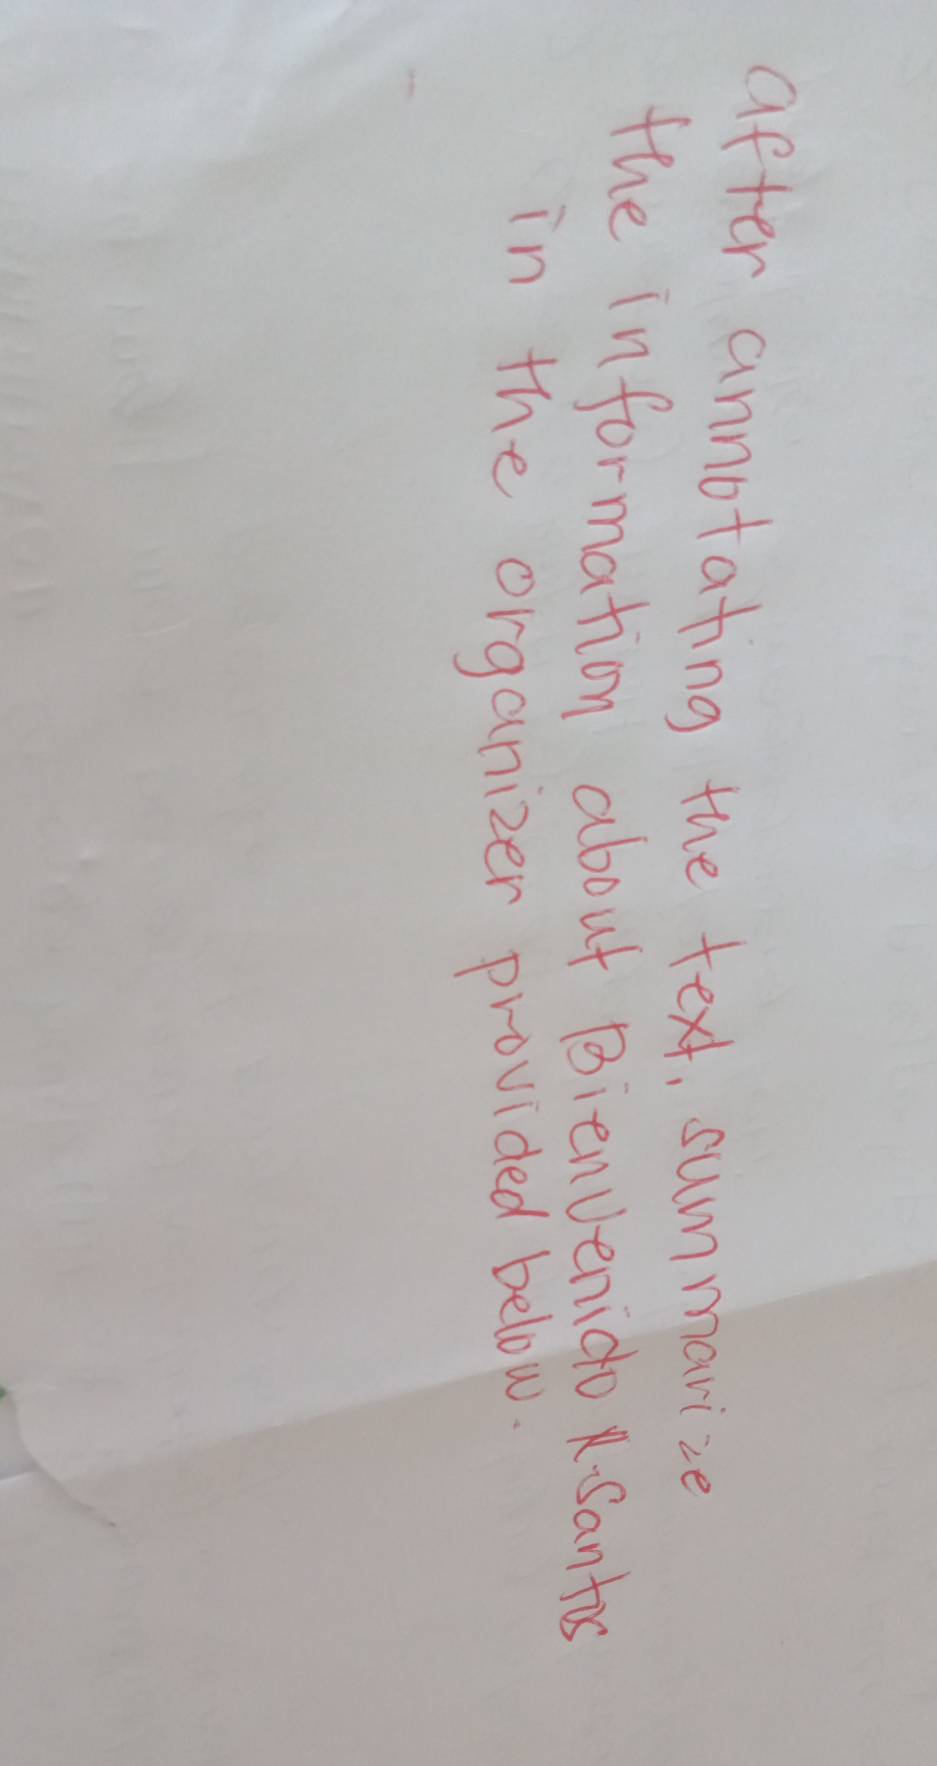 after annotating the text, summarize
the information about Bienvenido N. Santos
in the organizer provided below.